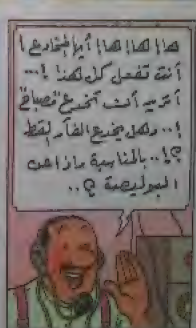 ها! ها! ها! أيها المخادع!
أنت تفعل كل هذا !...
أتريد أنت تخدع "مصباح"
!.. وهل يخدع الفأر القط
؟!.. بالمناسبة ماذا عن
البوليصة ؟..